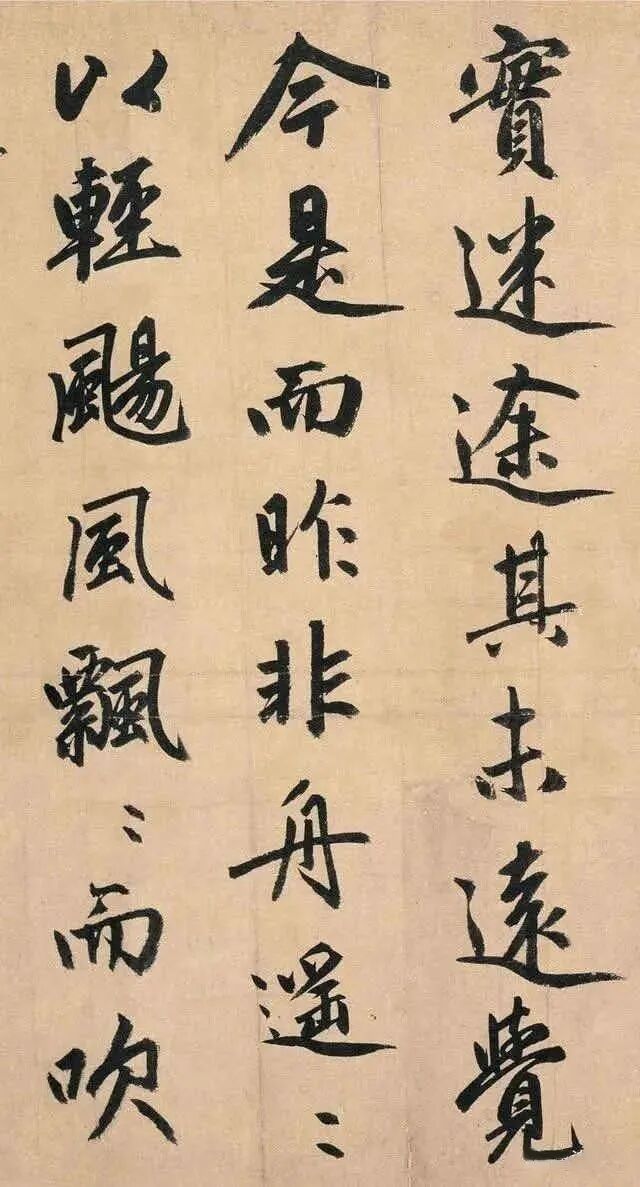 實迷途其未遠覺
今是而昨非舟遥〻
以輕颺風飄〻而吹